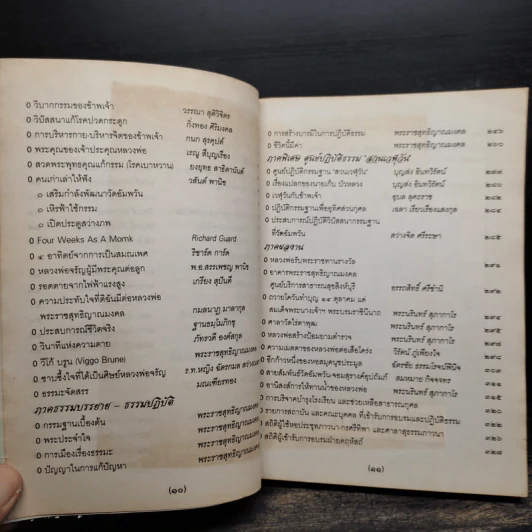 ๐ วิบากกรรมของข้าพเจ้า วรรณา สุติวิจิตร
๐ วิปัสสนาแก้โรคปวดกระดูก กิ่งทอง ศิริมงคล
๐ การบริหารกาย-บริหารจิตของข้าพเจ้า กนก สุรคุปต์
๐ พระคุณของเจ้าประคุณหลวงพ่อ เรณู สีบุญเรือง
๐ สวดพระพุทธคุณแก้กรรม (โรคเบาหวาน) ยงยุทธ สาธิตานันต์
๐ คนเก่าเล่าให้ฟัง วสันต์ พานิช
๐ เสริมกำลังพัฒนาวัดอัมพวัน
๐ เหิรฟ้าใช้กรรม
๐ เปิดประตูสว่างภพ
๐ Four Weeks As A Momk Richard Guard
๐ ๔ อาทิตย์จากการเป็นสมณเพศ ริชาร์ด การ์ด
๐ หลวงพ่อจรัญผู้มีพระคุณต่อลูก พ.อ.สรรเพชญ พานิช
๐ รอดตายจากไฟฟ้าแรงสูง เกรียง สุบินดี
๐ ความประทับใจที่ดิฉันมีต่อหลวงพ่อ
พระราชสุทธิญาณมงคล กมลนาฏ มาลากุล
๐ ประสบการณ์ชีวิตจริง
๐ วินาทีแห่งความตาย
๐ วีโก้ บรูน (Viggo Brune) พระราชสุทธิญาณมงคล
๐ ซาบซึ้งใจที่ได้เป็นศิษย์หลวงพ่อจรัญ
๐ ธรรมะจัดสรร มณเฑียรทอง
ภาคธรรมบรรยาย – ธรรมปฏิบัติ
๐ กรรมฐานเบื้องต้น พระราชสุทธิญาณมงคล
๐ พระประจำใจ พระราชสุทธิญาณมงคล
๐ การเมืองเรื่องธรรมะ พระราชสุทธิญาณมงคล
๐ ปัญญาในการแก้ปัญหา พระราชสุทธิญาณมงคล
(๑๐)
๐ การสร้างบารมีในการปฏิบัติธรรม พระราชสุทธิญาณมงคล ๒๔๖
๐ ชีวิตนี้มีค่า พระราชสุทธิญาณมงคล ๒๖๐
ภาคพิเศษ ศูนย์ปฏิบัติธรรม "สวนเวฬุวัน"
๐ ศูนย์ปฏิบัติกรรมฐาน "สวนเวฬุวัน" บุญส่ง อินทวิรัตน์
๐ เรื่องแปลกของนายเก็บ บัวหลวง บุญส่ง อินทวิรัตน์
๐ เวฬุวันกับข้าพเจ้า
๐ ปฏิบัติกรรมฐานเพื่ออุทิศส่วนกุศล
๐ ประสบการณ์ปฏิบัติวิปัสสนากรรมฐาน
ที่วัดอัมพวัน สว่างจิต ศรีระษา ๒๘๕
ภาคผลงาน
๐ หลวงพ่อรับพระราชทานรางวัล ๒๙๑
๐ อาคารพระราชสุทธิญาณมงคล
ศูนย์บริการสาธารณสุขสิงห์บุรี
๐ ถวายโควันทำบุญ ๑๔ ตุลาคม แด่
สมเด็จพระนางเจ้าฯ พระบรมราชินีนาถ
๐ ศาลาวัดไรตาพุฒ
๐ หลวงพ่อสร้างป้อมยามตำรวจ
๐ ความเมตตาของหลวงพ่อต่อเสือโคร่ง
๐ อีกก้าวหนึ่งของหอสมุดคนชูประมูล
๐ สายสัมพันธ์วัดอัมพวัน
๐ อานิสงส์การให้ทานน้ำของหลวงพ่อ
๐ การบริจาคบำรุงโรงเรียน และช่วยเหลือสาธารณกุศล
๐ รายการสถาบัน และคณะบุคคล ที่เข้ารับการอบรมและปฏิบัติธรรม
๐ สถิติผู้เข้ารับการอบรมฝ่ายคฤหัสถ์ ๓๒๘
(๑๑)